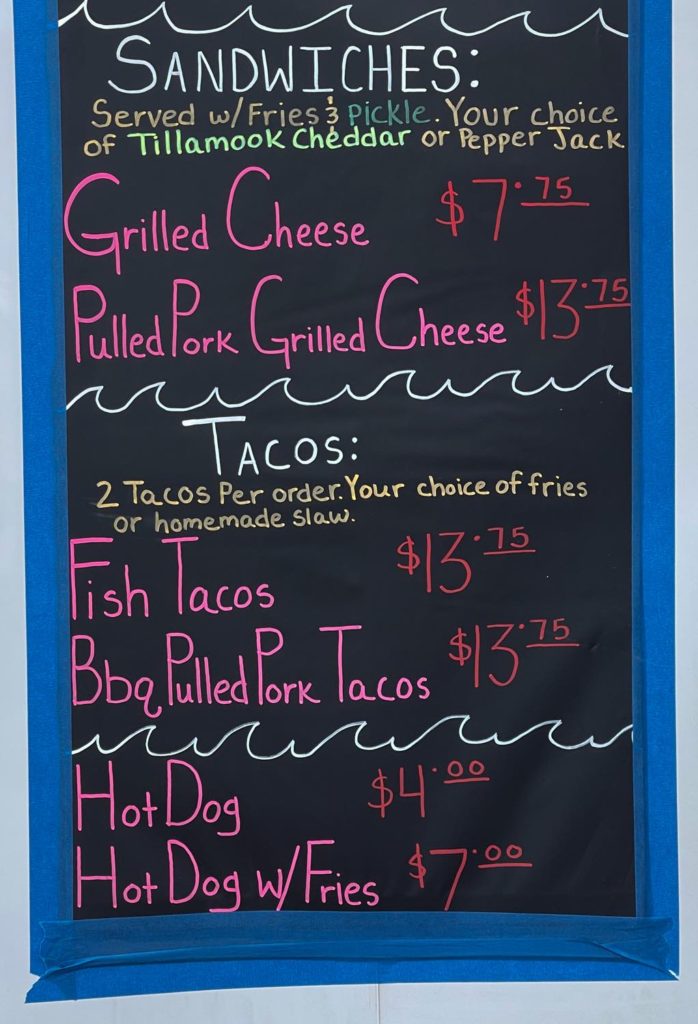 SANDWICHES:
Served w/Fries & Pickle. Your choice
of Tillamook Cheddar or Pepper Jack
Grilled Cheese $7.75
Pulled Pork Grilled Cheese $13.75
TACOS:
2 Tacos Per order. Your choice of fries
or homemade slaw.
Fish Tacos $13.75
Bbq Pulled Pork Tacos $13.75
Hot Dog $4.00
Hot Dog w/Fries $7.00